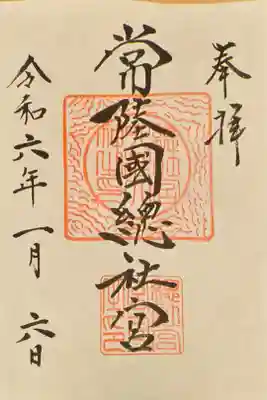 奉拝
常陸國總社宮
令和六年一月六日